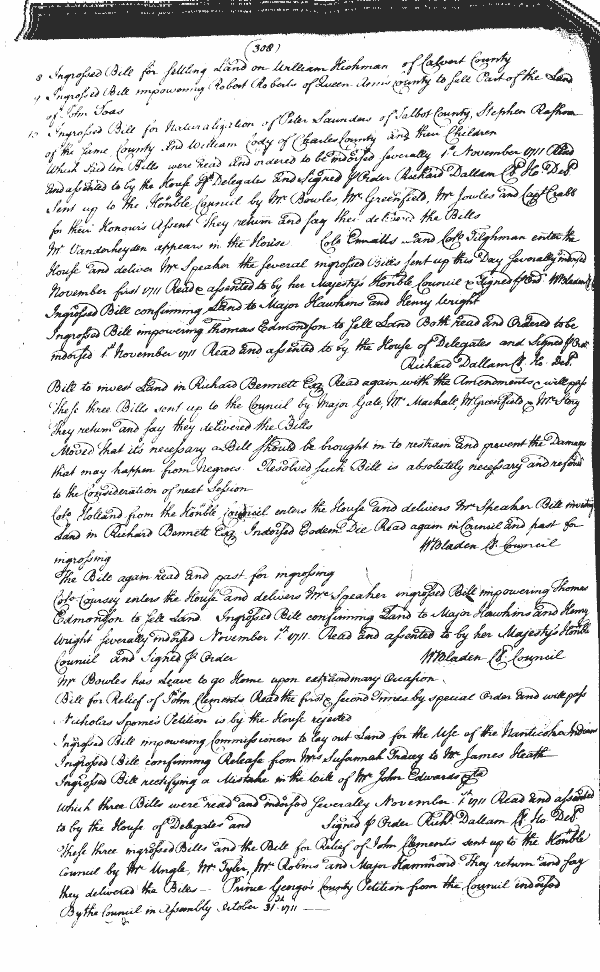 (308)
8 Ingrossed Bill for settling Land on William Hickman of Calvert County
9 Ingrossed Bill impowering Robert Roberts of Queen Anns County to sell Part of the Land
of John Joas
10 Ingrossed Bill for Naturalization of Peter Saunders of Talbot County, Stephen
of the same County and William Cody of Charles County and their Children
Which said ten Bills were read and ordered to be indorsed severally 1st November 1711 Read
and assented to by the House of Delegates and Signed p Order Richard Dallam Cl Ho Del.
Sent up to the Honble Council by Mr Bowles, Mr Greenfield, Mr Jowles and Capt Crabb
for their Honours Assent They return and say they delivered the Bills
Mr Vanderheyden appears in the House Colo Ennalls and Colo Tilghman enter the
House and deliver Mr Speaker the several ingrossed Bills sent up this Day severally indorsed
November first 1711 Read & assented to by her Majestys Honble Council & Signed p Ord. WBladen Cl
Ingrossed Bill confirming Land to Major Hawkins and Henry Wright
Ingrossed Bill impowering Thomas Edmondson to sell Land Both read and Ordered to be
indorsed 1st November 1711 Read and assented to by the House of Delegates and Signed p Ord
Richard Dallam Cl Ho Del.
Bill to invest Land in Richard Bennett Esq Read again with the Amendments & will pass
These three Bills sent up to the Council by Major Gale, Mr Mackall, Mr Greenfield & Mr
They return and say they delivered the Bills
Moved that its necessary a Bill should be brought in to restrain and prevent the Damage
that may happen from Negroes Resolved such Bill is absolutely necessary and referd
to the Consideration of next Session
Colo Holland from the Honble Council enters the House and delivers Mr Speaker Bill investing
Land in Richard Bennett Esq Indorsed Eodem Die Read again in Council and past for
ingrossing WBladen Cl Council
The Bill again read and past for ingrossing
Colo Coursey enters the House and delivers Mr Speaker ingrossed Bill impowering Thomas
Edmondson to sell Land Ingrossed Bill confirming Land to Major Hawkins and Henry
Wright severally indorsed November 1st 1711. Read and assented to by her Majestys Honble
Council and Signed p Order WBladen Cl Council
Mr Bowles has Leave to go Home upon extraordinary Occasion
Bill for Relief of John Clements Read the first & second Times by special Order and will pass
Nicholas Sporne's Petition is by the House rejected
Ingrossed Bill impowering Commissioners to lay out Land for the Use of the Nanticoke Indians
Ingrossed Bill confirming Release from Mrs Susannah Tracey to Mr James Heath
Ingrossed Bill rectifying a Mistake in the Will of Mr John Edwards
Which three Bills were read and indorsed severally November 1st 1711 Read and assented
to by the House of Delegates and Signed p Order Richd Dallam Cl Ho Del.
These three ingrossed Bills and the Bill for Relief of John Clements sent up to the Honble
Council by Mr Ungle, Mr Tyler, Mr Robins and Major Hammond They return and say
they delivered the Bills Prince George's County Petition from the Council indorsed
By the Council in Assembly October 31st 1711